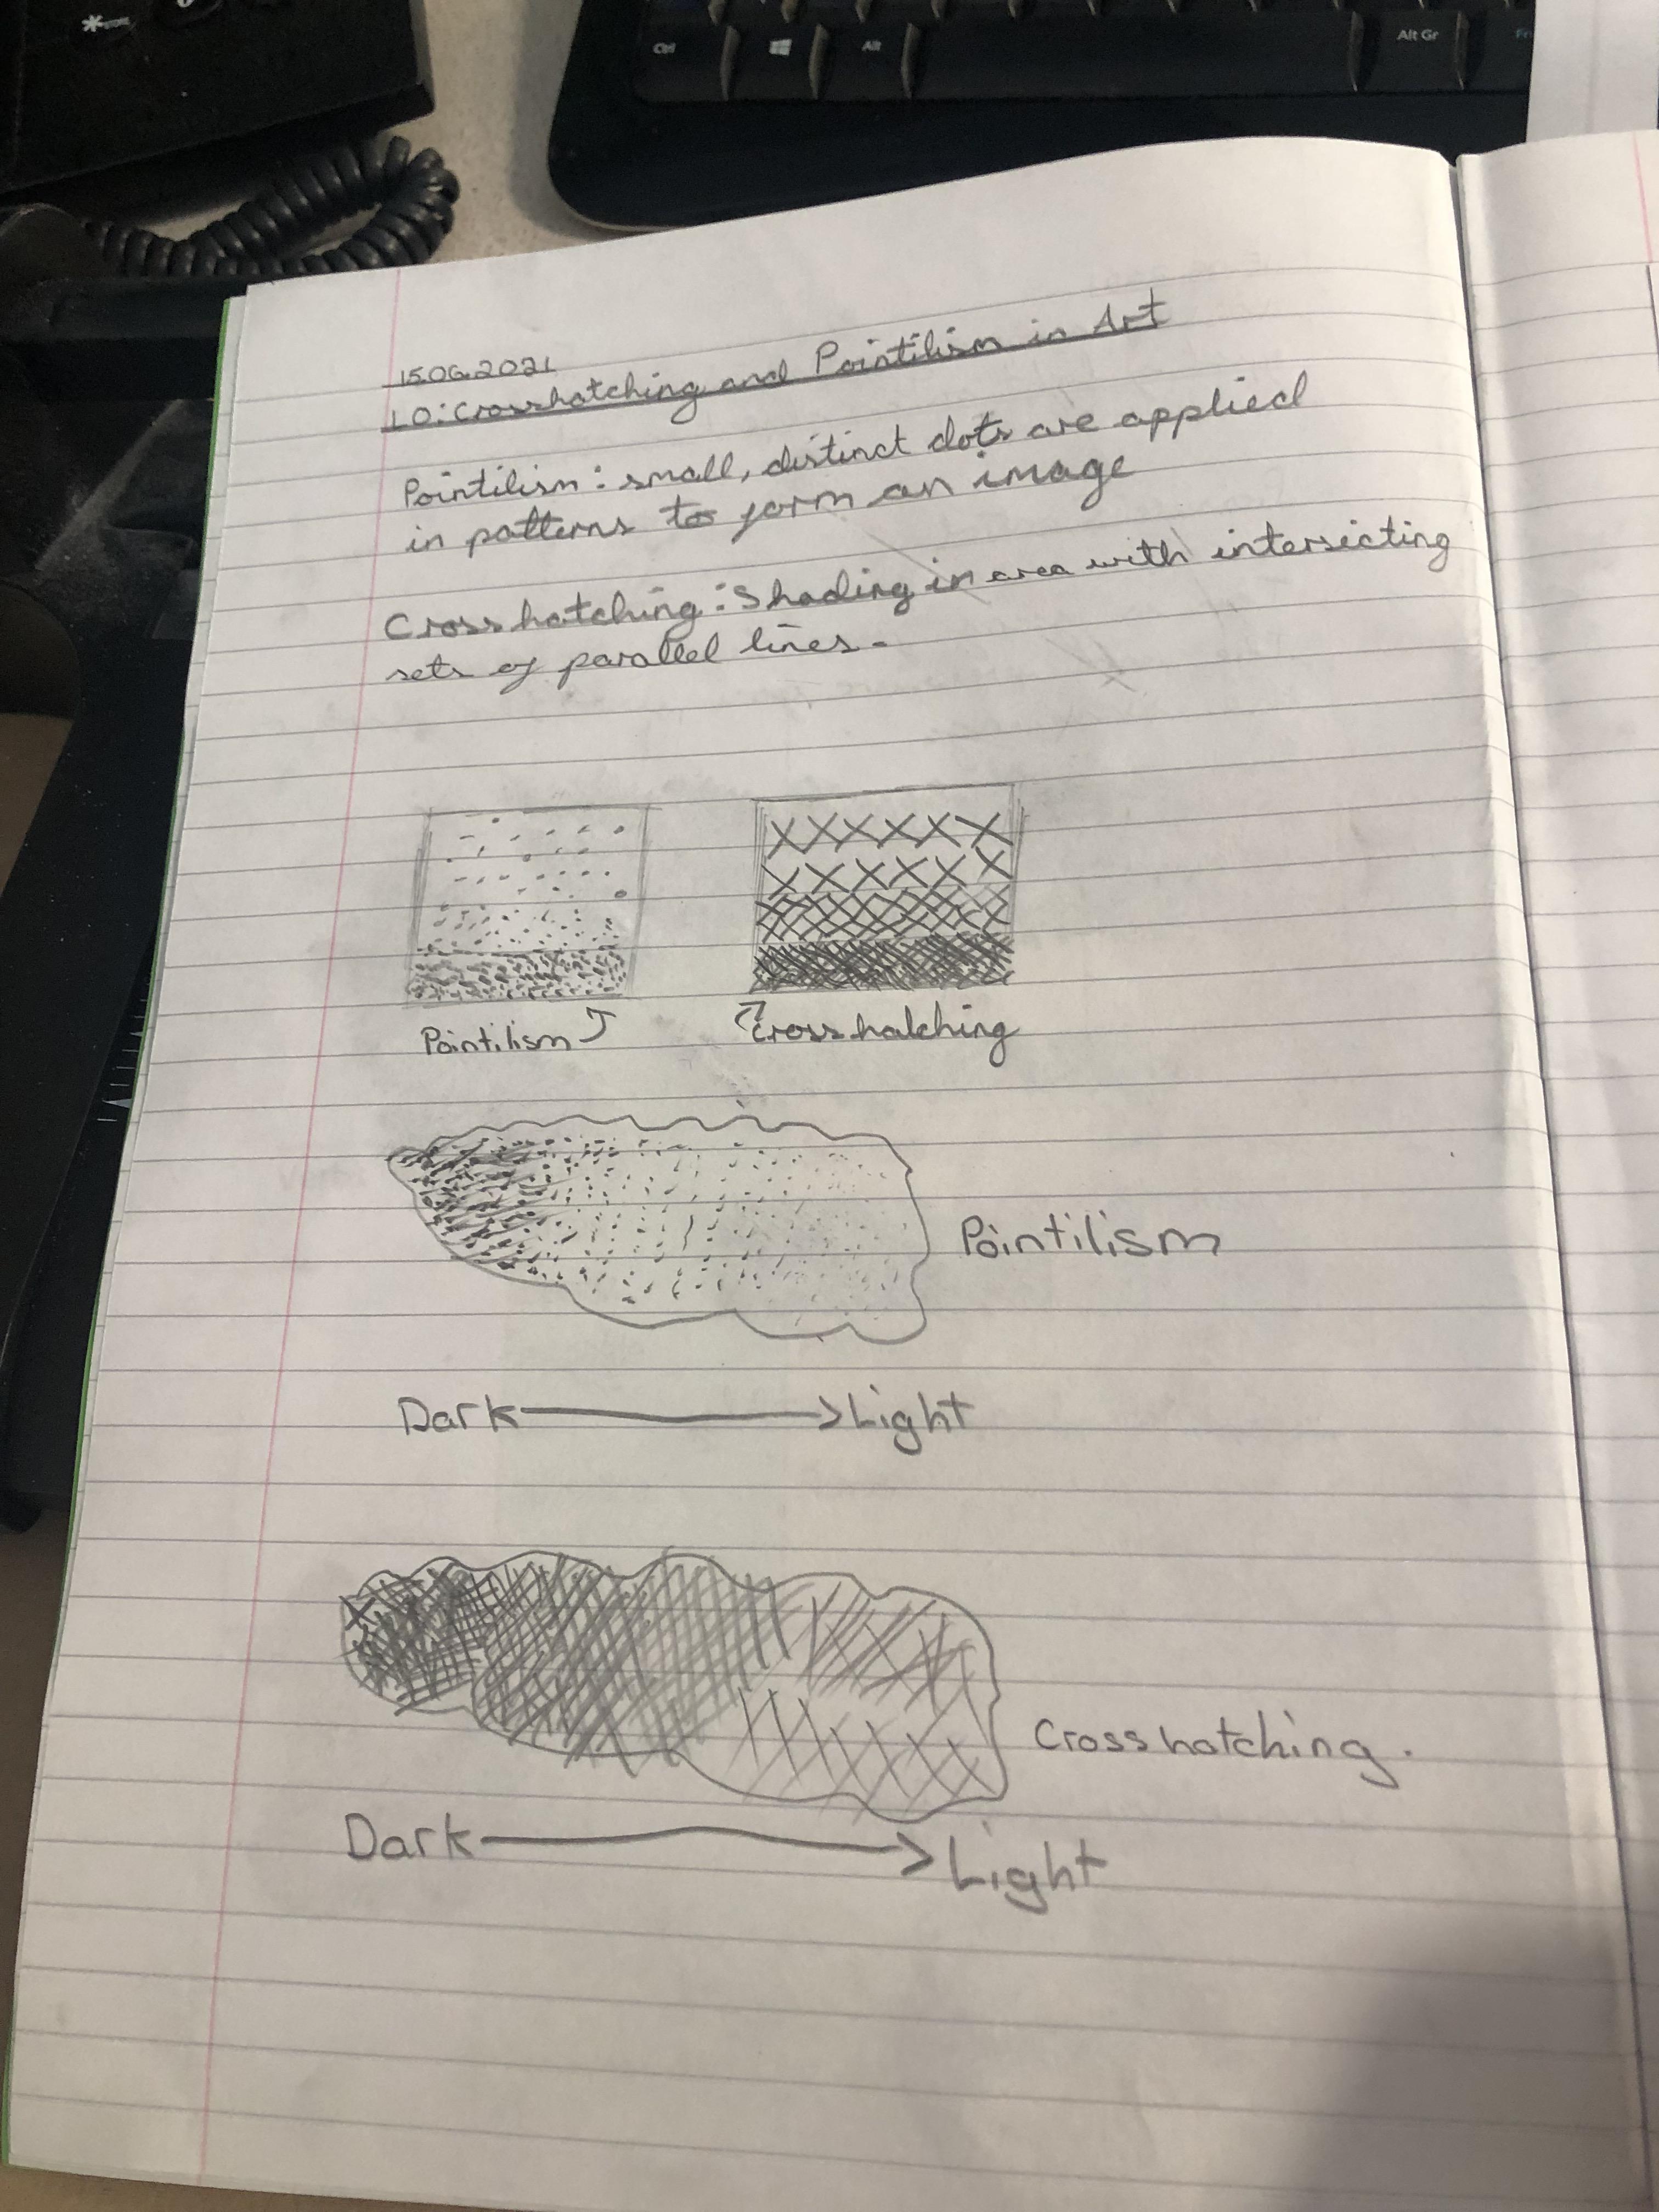 Ctrl Alt Alt Gr Fn
15.06.2021
LO: Crosshatching and Pointilism in Art
Pointilism: small, distinct dots are applied
in patterns to form an image
Cross hatching: Shading in area with intersecting
sets of parallel lines.
Pointilism Cross hatching
Pointilism
Dark Light
Cross hatching.
Dark Light